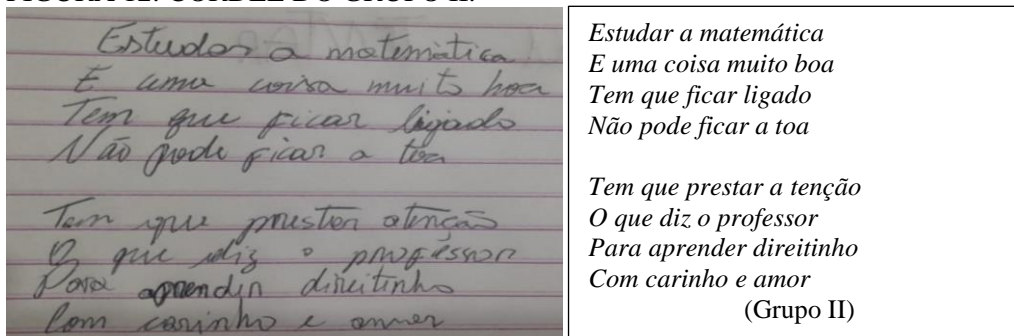 Estudar a matemática
E uma coisa muito boa
Tem que ficar ligado
Não pode ficar a toa
Tem que prestar atenção
O que diz o professor
Para aprender direitinho
Com carinho e amor
Estudar a matemática
E uma coisa muito boa
Tem que ficar ligado
Não pode ficar a toa
Tem que prestar a tenção
O que diz o professor
Para aprender direitinho
Com carinho e amor
(Grupo II)